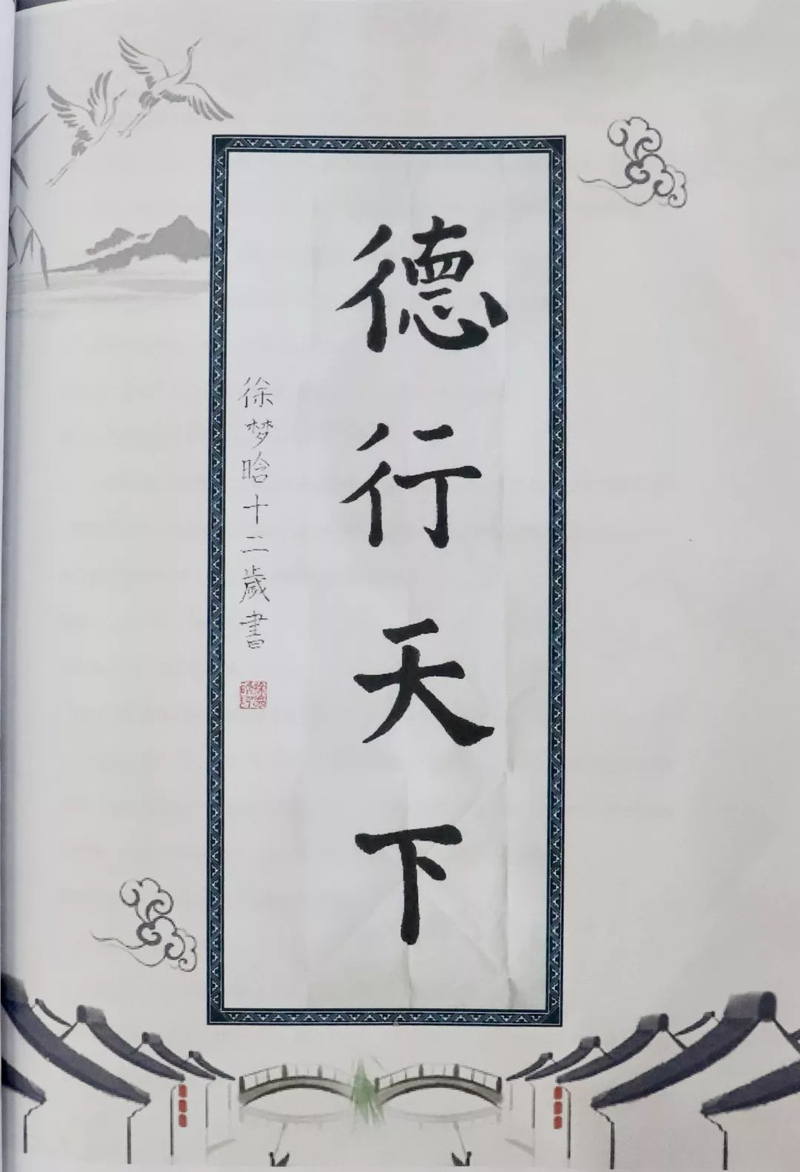 德行天下
徐梦晗十二歲書